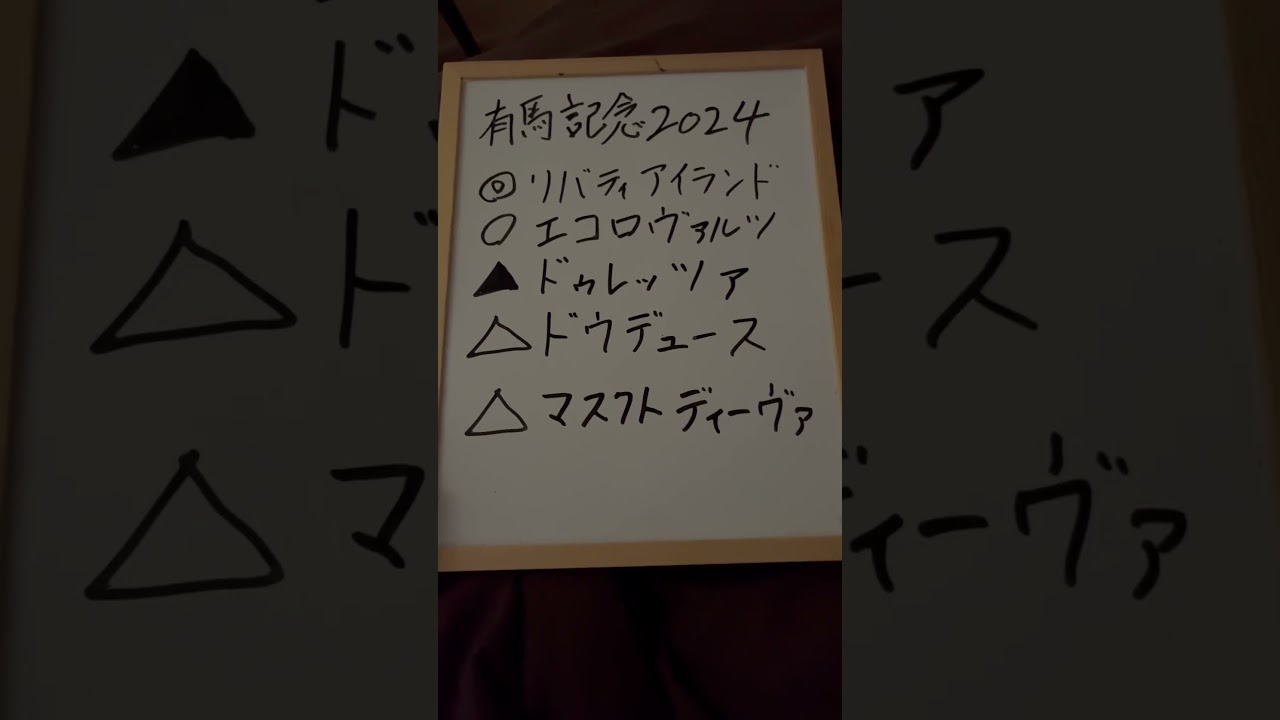 有馬記念2024
◎リバティアイランド
○エコロヴァルツ
▲ドゥレッツァ
△ドウデュース
△マスクトディーヴァ